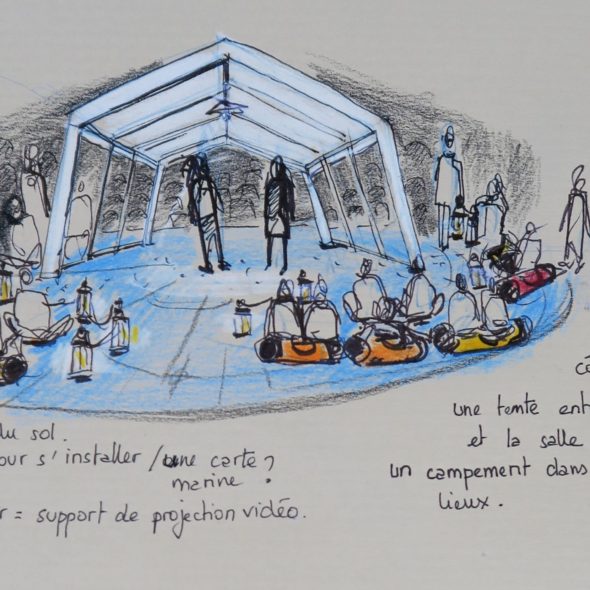 du sol.
our s'installer / une carte ?
marine .
r = support de projection vidéo.
cô
une tente ent
et la salle
un campement dans
lieux.